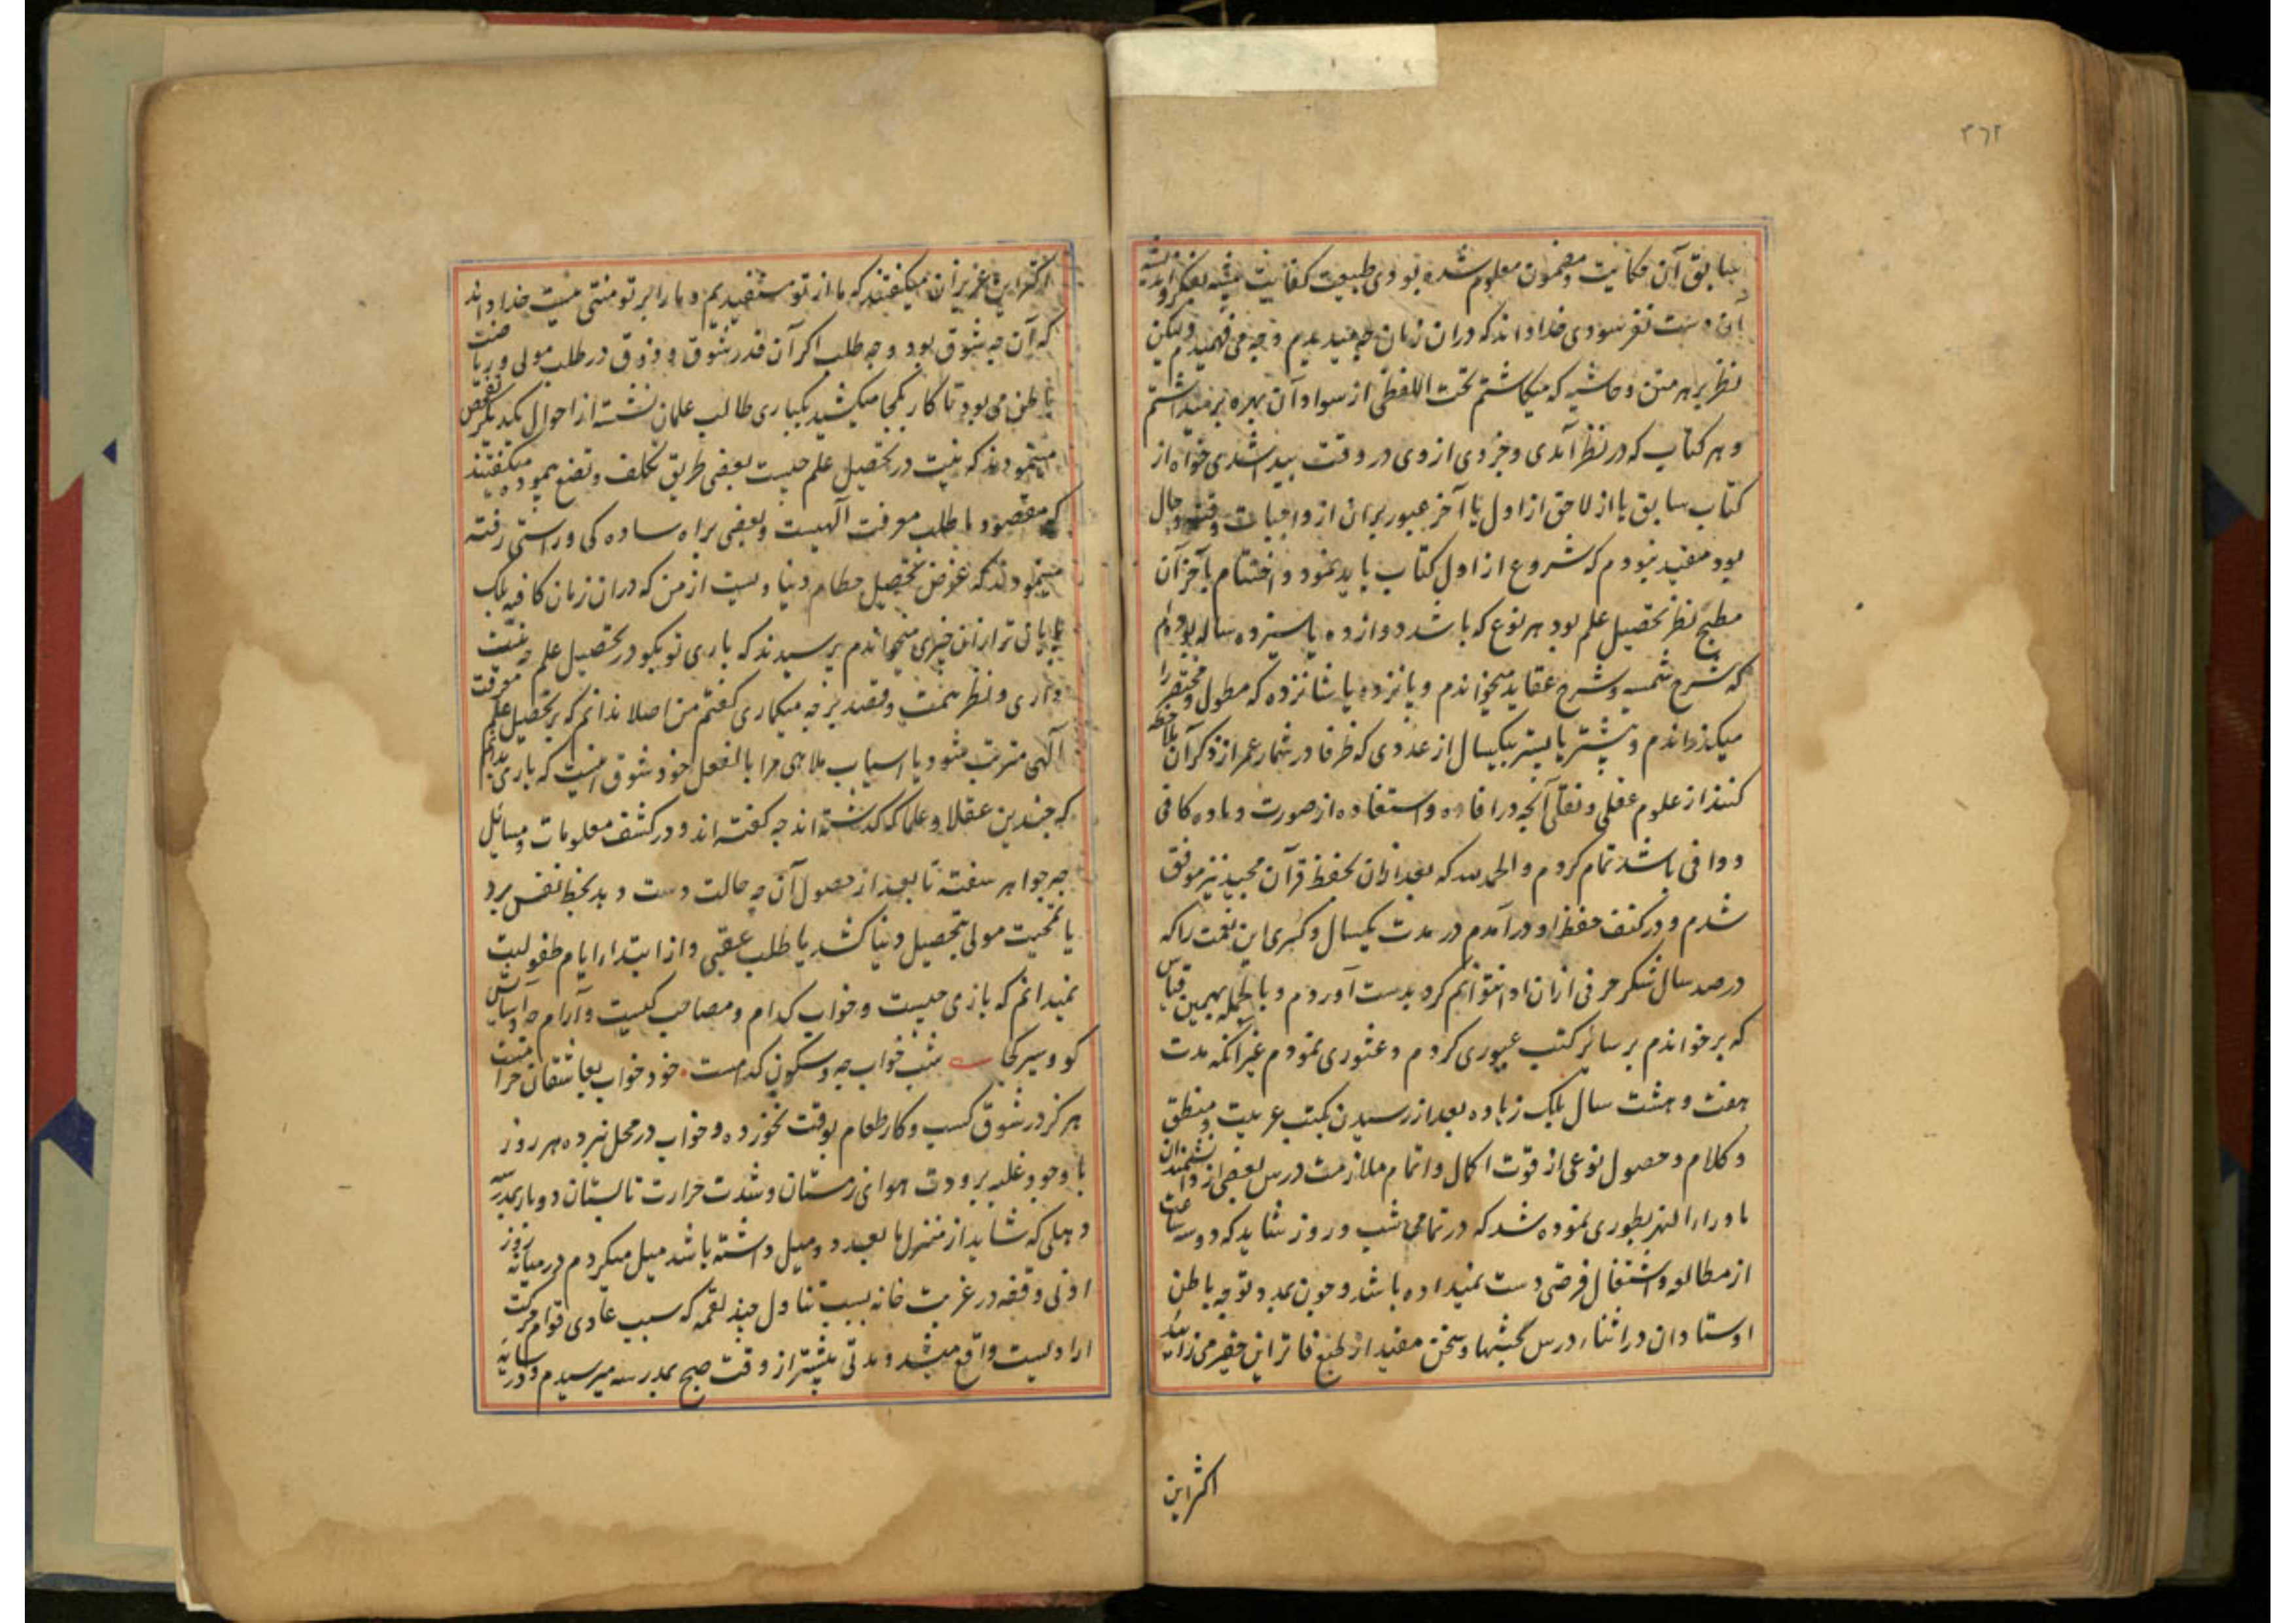 ۳۶۲
سابق آن حکایت و مضمون معلوم شده بودی طبیعت کفایت پیشه بفکر و اندیشه
آن دست نفرسودی خدا داند که دران زمان چه میدیدم و چه می فهمیدم ولیکن
نظر بر هر متن و حاشیه که میکاشتم تحت اللفظی از سواد آن بهره برمیداشتم
و هر کتاب که در نظر آمدی و جزوی از وی در وقت پیدا شدی خواه از
کتاب سابق یا از لاحق از اول تا آخر عبور بران از واجبات وقت و حال
بود مقید نبودم که شروع از اول کتاب باید نمود و اختتام بآخر آن
مطمح نظر تحصیل علم بود بهر نوع که باشد دوازده یا سیزده ساله بودم
که شرح شمسیه و شرح عقاید میخواندم و پانزده یا شانزده که مطول و مختصر را
میکذراندم و پیشتر یا پستر بیکسال از عددی که ظرفا در شمار عمر از ذکر آن ملاحظه
کنند از علوم عقلی و نقلی آنچه در افاده و استفاده از صورت و ماده کافی
و وافی باشد تمام کردم و الحمدلله که بعد ازان بحفظ قرآن مجید نیز موفق
شدم و در کنف حفظ او درآمدم در مدت یکسال و کسری این نعمت را که
در صد سال شکر حرفی ازان ادا نتوانم کرد بدست آوردم و بالجمله بهمین قیاس
که بر خواندم بر سائر کتب عبوری کردم و عثوری نمودم غیر آنکه مدت
هفت و هشت سال بلک زیاده بعد از رسیدن بکتب عربیت و منطق
و کلام و حصول نوعی از قوت اکمال و اتمام ملازمت درس بعضی از دانشمندان
ماوراء النهر بطوری نموده شد که در تمامی شب و روز شاید که دو سه ساعت
از مطالعه و اشتغال فرصتی دست نمیداده باشد و چون بمدد توجه باطن
اوستادان در اثناء درس بحثها و سخن مفید از طبع فاتر این حقیر می زائید
اکثر این
اکثر این عزیزان میکفتند که ما از تو مستفیدیم و ما را بر تو منتی نیست خدا داند
که آن چه شوق بود و چه طلب اکر آن قدر شوق و ذوق در طلب مولی و ریاضت
باطن می بود تا کار بکجا میکشید یکباری طالب علمان نشسته از احوال یکدیکر تفحص
مینمودند که نیت در تحصیل علم چیست بعضی طریق تکلف و تصنع پیموده میکفتند
که مقصود ما طلب معرفت آلهیست و بعضی براه ساده کی و راستی رفته
مینمودند که غرض تحصیل حطام دنیاویست از من که دران زمان کافیه بلک
پایان تر ازان چیزی میخواندم پرسیدند که باری تو بکو در تحصیل علم چه نیت
داری و نظر همت و قصد بر چه میکماری کفتم من اصلا ندانم که بر تحصیل علم معرفت
آلهی مترتب شود یا اسباب ملاهی مرا بالفعل خود شوق اینست که باری بدانم
که چندین عقلا و علما که کذشته اند چه کفته اند و در کشف معلومات و مسائل
چه جواهر سفته تا بعد از حصول آن چه حالت دست دهد بحظ نفس برد
یا بمحبت مولی بتحصیل دنیا کشد یا طلب عقبی و از ابتداء ایام طفولیت
نمیدانم که بازی چیست و خواب کدام و مصاحب کیست و آرام چه و آسایش
کو و سیر کجا شب خواب چه و سکون کدامست خود خواب بعاشقان حرامست
هرکز در شوق کسب و کار طعام بوقت نخورده و خواب در محل نبرده هر روز
با وجود غلبه برودت هوای زمستان و شدت حرارت تابستان دو بار بمدرسه
دهلی که شاید از منزل ما بعد دو میل داشته باشد میل میکردم در میانه روز
ادنی وقفه در غربت خانه بسبب تناول چند لقمه که سبب عادی قوام حرکت
ارادیست واقع میشد و مدتی پیشتر از وقت صبح بمدرسه میرسیدم و در سایه